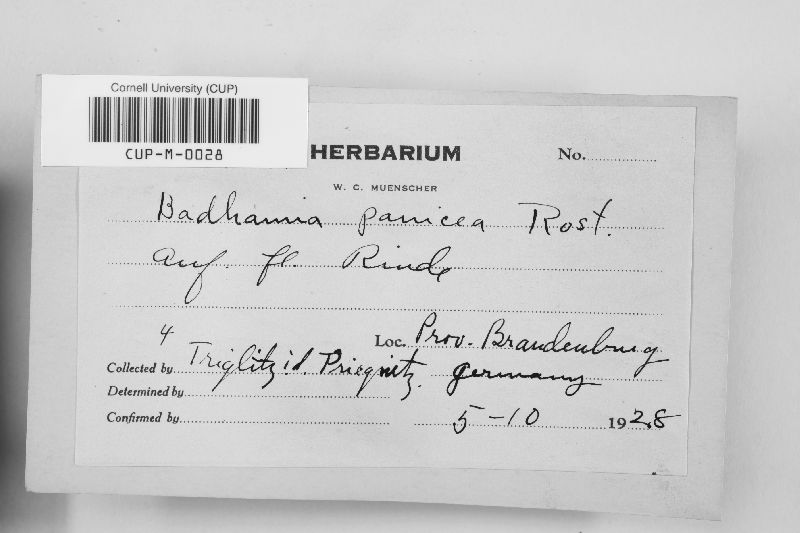 Cornell University (CUP)
CUP-M-0028
HERBARIUM
No.
W. C. MUENSCHER
Badhamia panicea Rost.
Auf fl. Rinde
4
Loc. Prov. Brandenburg
Collected by Triglitz i/d. Priegnitz. Germany
Determined by
Confirmed by
5-10 1928